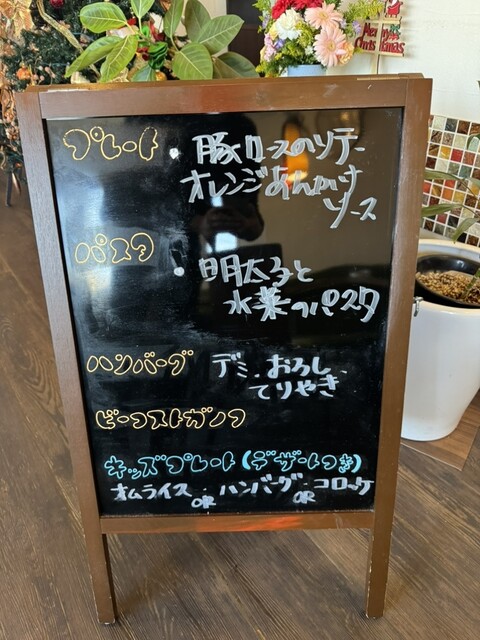 Merry
Christmas
プレート
・豚ロースのソテー
オレンジあんかけ
ソース
パスタ
・明太子と
水菜のパスタ
ハンバーグ デミ.おろし.
てりやき
ビーフストガノフ
キッズプレート(デザートつき)
オムライス OR ハンバーグ OR コロッケ